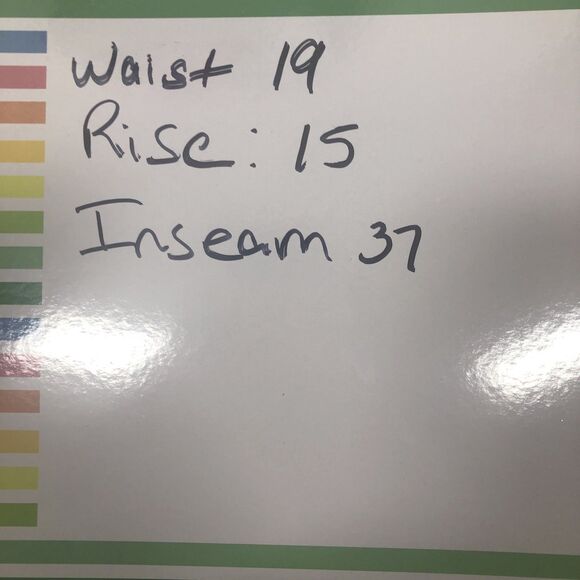 Waist 19
Rise: 15
Inseam 37